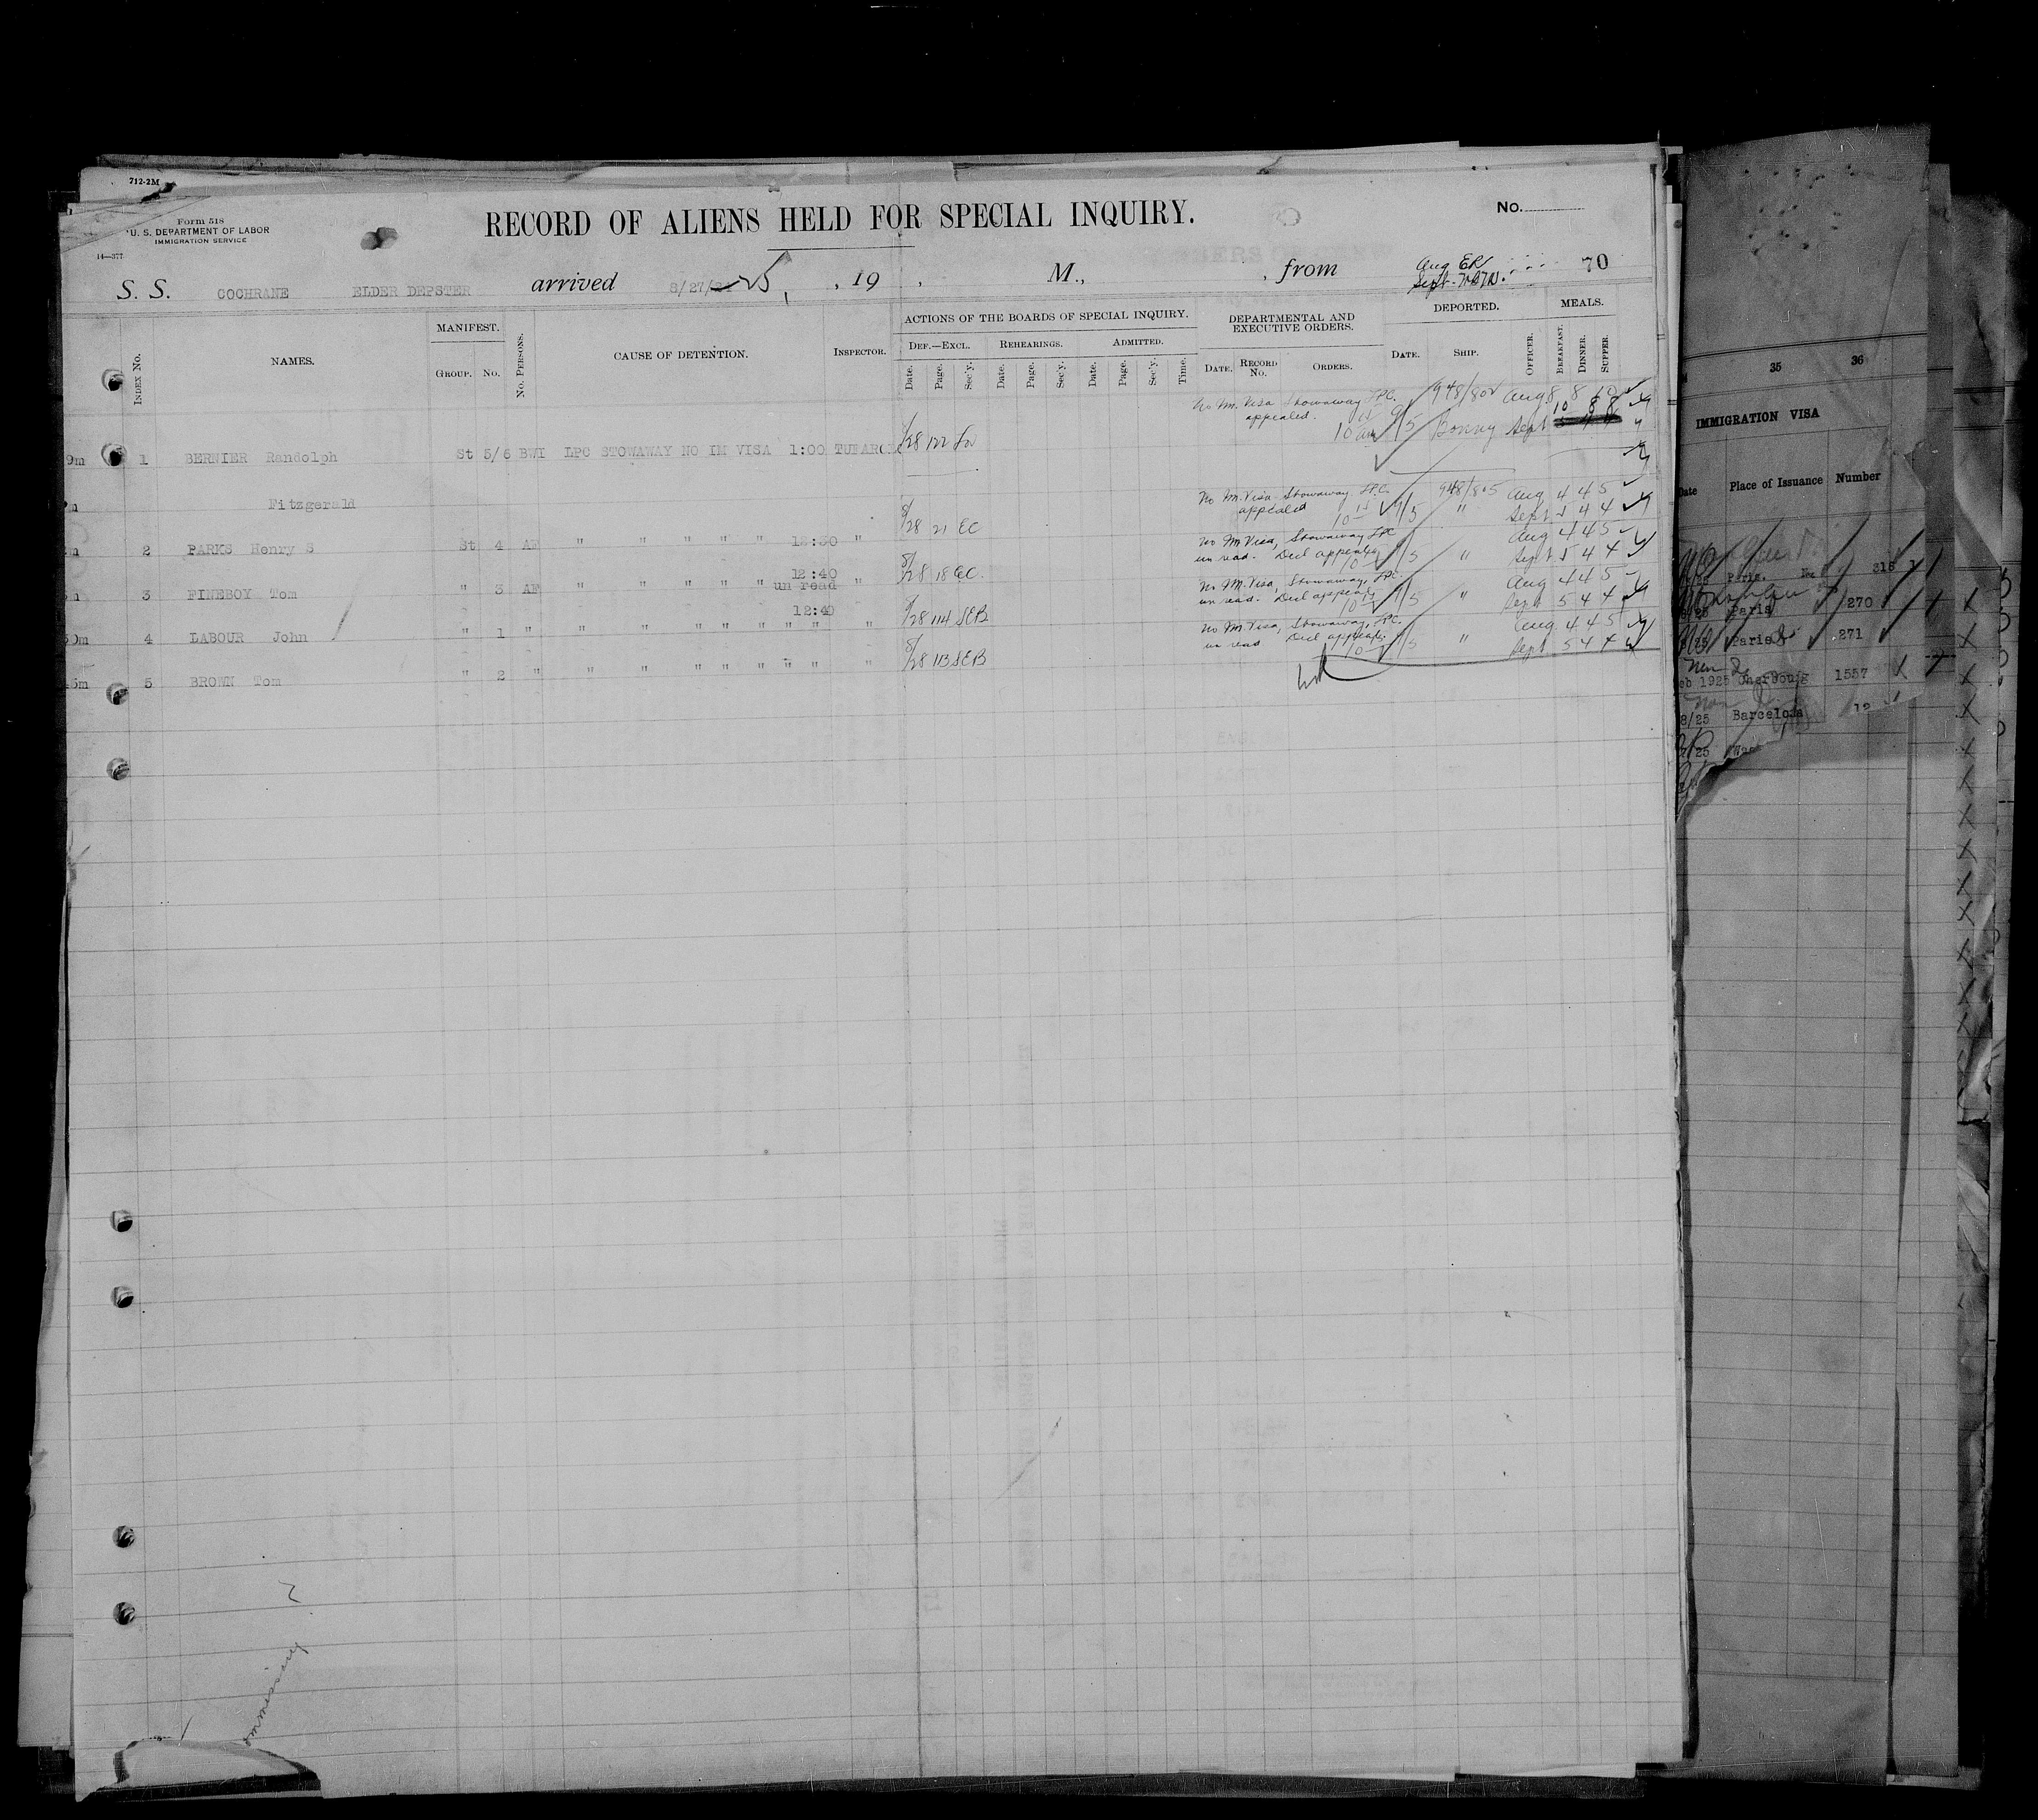 712-2M
Form 518
U. S. DEPARTMENT OF LABOR
IMMIGRATION SERVICE
14—377
RECORD OF ALIENS HELD FOR SPECIAL INQUIRY.
No.
S. S. COCHRANE ELDER DEPSTER arrived 8/27/25, , 19 , M., , from
Aug ER
Sept
70
INDEX No.
NAMES.
MANIFEST.
GROUP. No.
No. PERSONS.
CAUSE OF DETENTION.
INSPECTOR.
ACTIONS OF THE BOARDS OF SPECIAL INQUIRY.
DEF.—EXCL. REHEARINGS. ADMITTED.
Date. Page. Sec'y. Date. Page. Sec'y. Date. Page. Sec'y. Time.
DEPARTMENTAL AND
EXECUTIVE ORDERS.
DATE. RECORD No. ORDERS.
DEPORTED.
DATE. SHIP. OFFICER.
MEALS.
BREAKFAST. DINNER. SUPPER.
No Im. Visa Stowaway LPC. 948/802 Aug 8 8 10
appealed. 9/5 Bonny Sept 10 8 8
9m 1 BERNIER Randolph St 5/6 BWI LPC STOWAWAY NO IM VISA 1:00 8/28 122
Fitzgerald
No Im. Visa Stowaway LPC. 948/805 Aug 4 4 5
appealed 10 15 9/5 " Sept 5 4 4
2 PARKS Henry S St 4 AF " " " " " 12:30 " 8/28 21 EC
No Im Visa, Stowaway LPC Aug 4 4 5
un read. Decl appeal 10 15 9/5 " Sept 5 4 4
12:40
3 FINEBOY Tom " 3 AF " " " " " un read " 8/28 18 EC.
No Im Visa, Stowaway, LPC. Aug 4 4 5
un read. Decl appeal 10 15 9/5 " Sept 5 4 4
12:40
4 LABOUR John " 1 " " " " " " " " " 8/28 114 SEB
No Im Visa, Stowaway, LPC. Aug. 4 4 5
un read Decl appeal. 9/5 " Sept 5 4 4
5 BROWN Tom " 2 " " " " " " " " " 8/28 113 SEB
35 36
IMMIGRATION VISA
Date Place of Issuance Number
Paris.
Paris 270
Paris 271
1925 Cherbourg 1557
8/25 Barcelona 12
/25